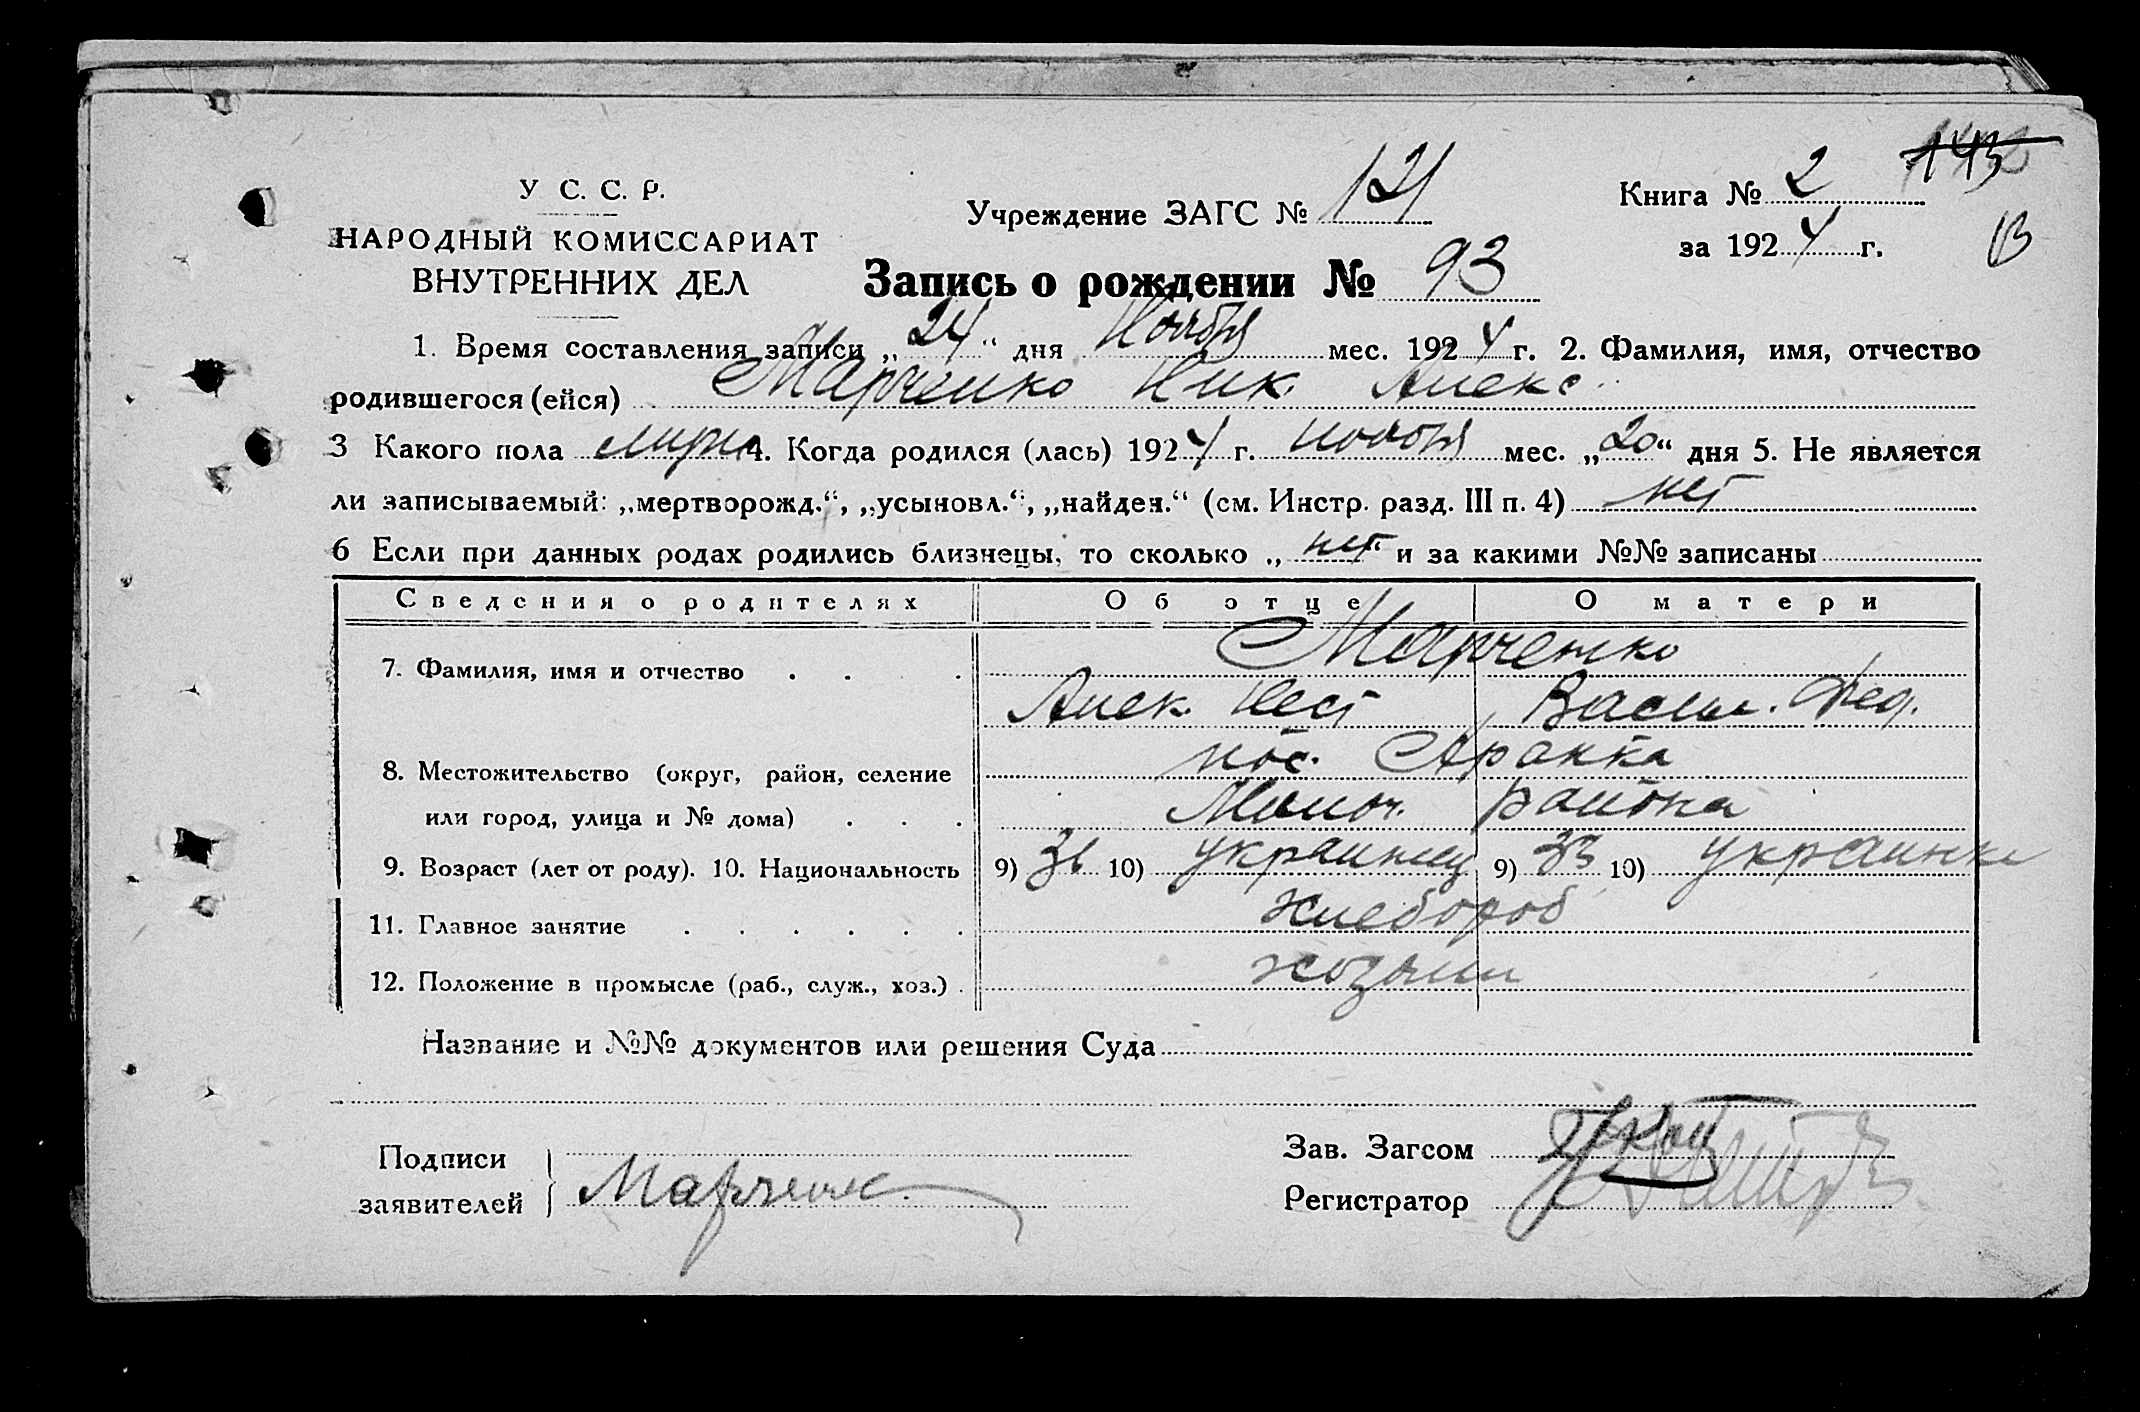 У С. С. Р.
НАРОДНЫЙ КОМИССАРИАТ
ВНУТРЕННИХ ДЕЛ
Учреждение ЗАГС № 121
Книга № 2
за 1924 г.
Запись о рождении № 93
1. Время составления записи „24“ дня Ноября мес. 1924 г. 2. Фамилия, имя, отчество
родившегося (ейся) Марченко Ник. Алекс.
3 Какого пола 4. Когда родился (лась) 1924 г. ноября мес. „20“ дня 5. Не является
ли записываемый: „мертворожд.“, „усыновл.“, „найден.“ (см. Инстр. разд. III п. 4) нет
6 Если при данных родах родились близнецы, то сколько „нет“ и за какими №№ записаны
Сведения о родителях Об отце О матери
Марченко
7. Фамилия, имя и отчество
Алек. Нест Васил. Фед.
8. Местожительство (округ, район, селение пос.
или город, улица и № дома) района
9. Возраст (лет от роду). 10. Национальность 9) 36 10) украинец 9) 33 10) украинка
11. Главное занятие хлебороб
12. Положение в промысле (раб., служ., хоз.) хозяин
Название и №№ документов или решения Суда
Подписи
заявителей Марченк
Зав. Загсом
Регистратор